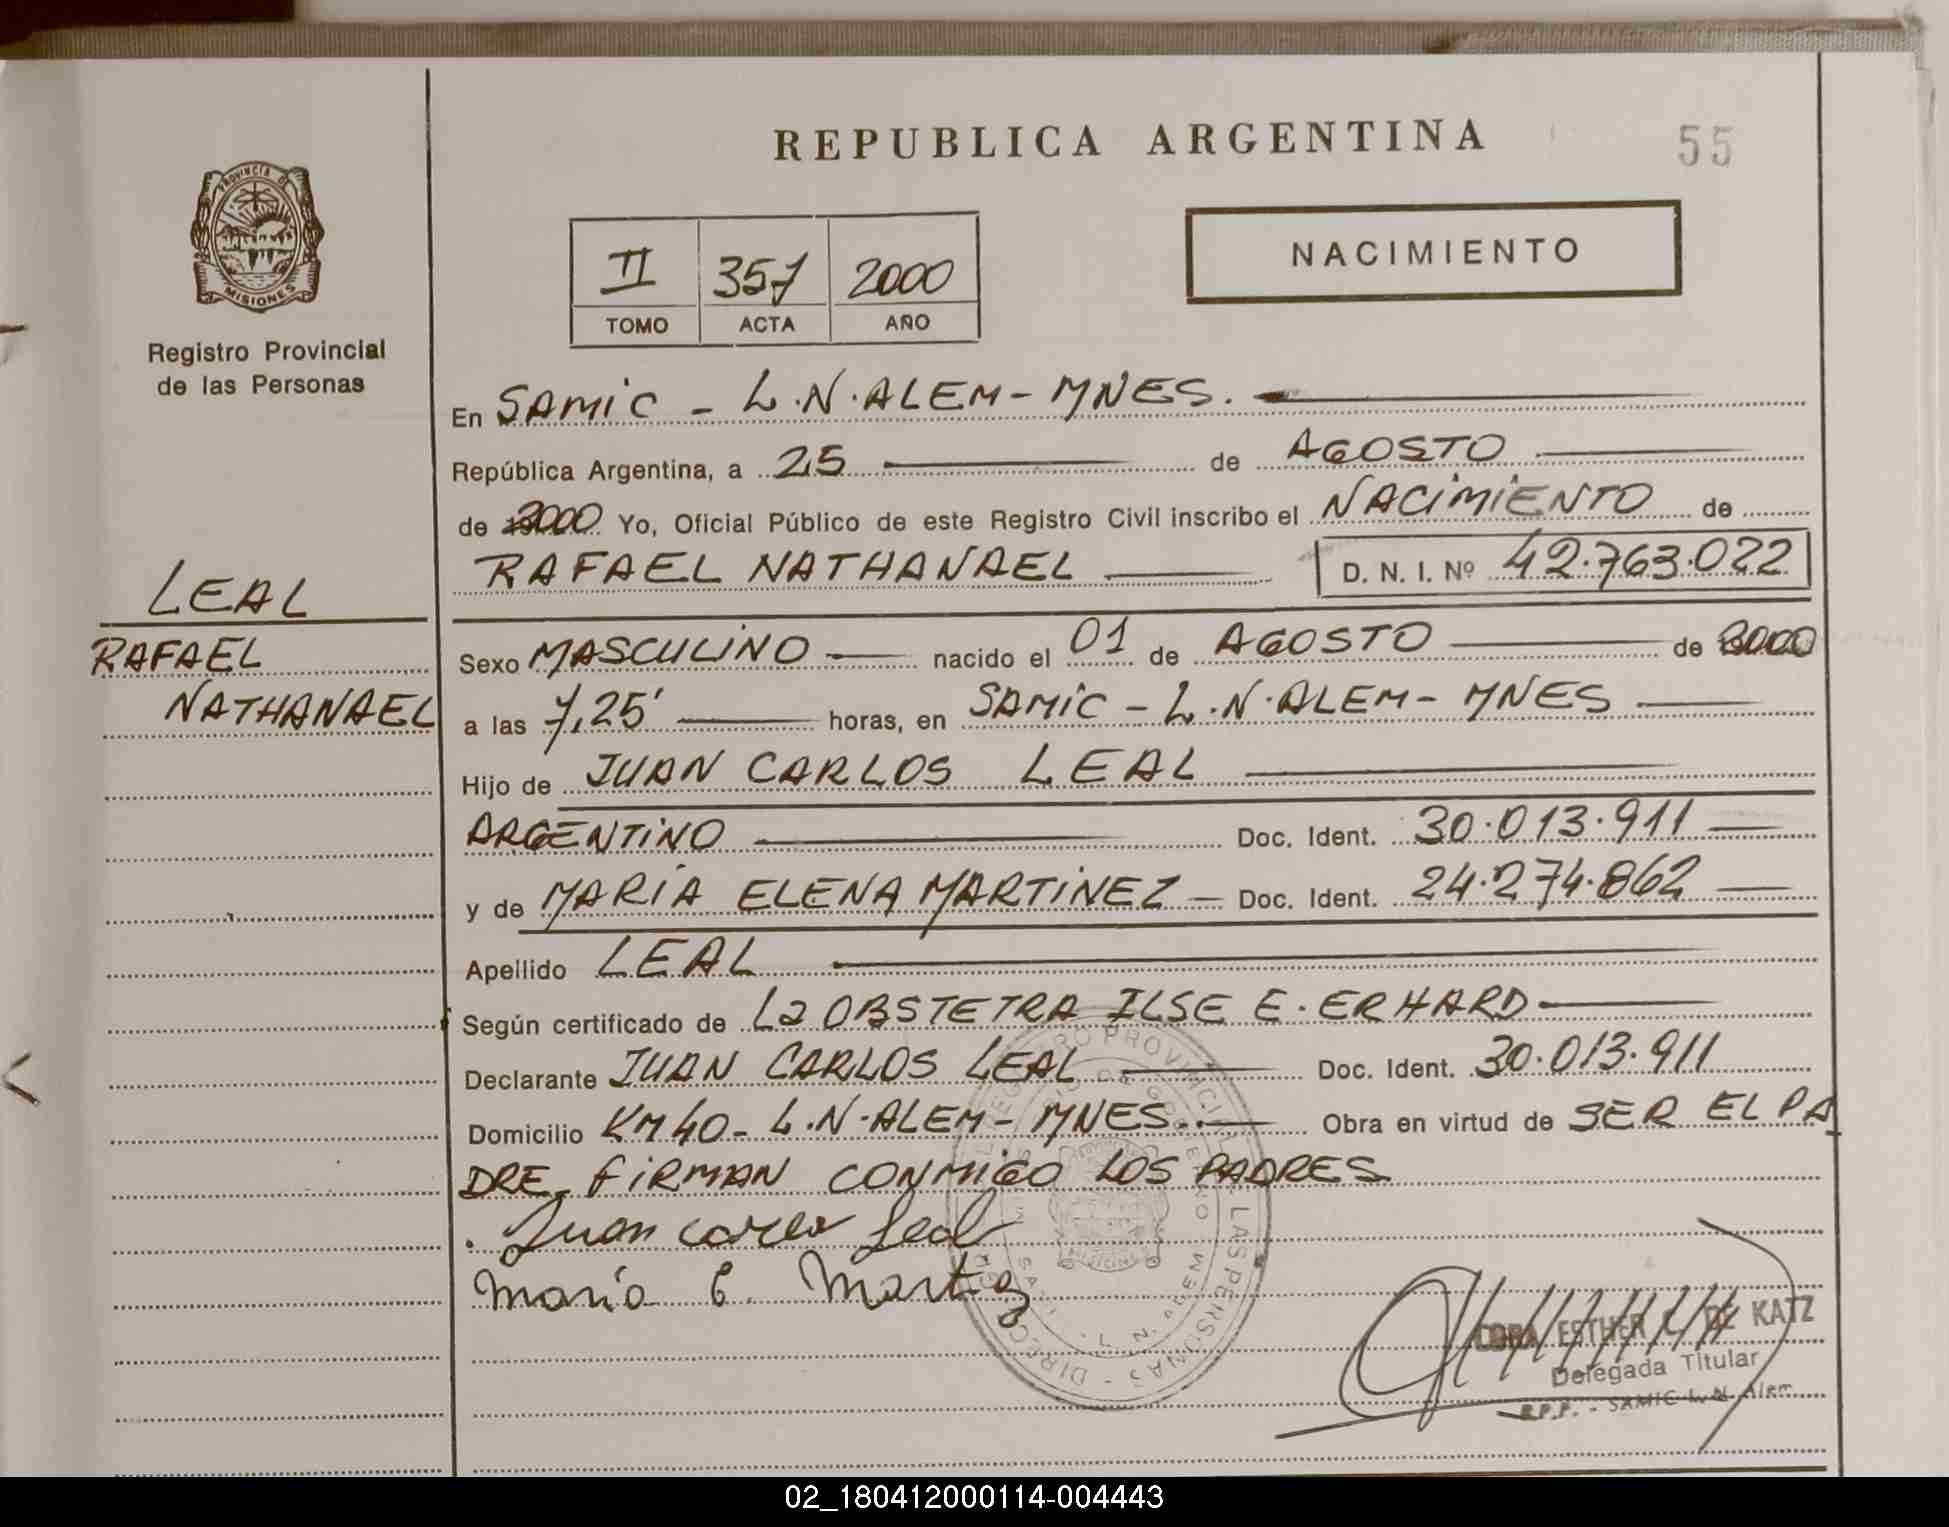 REPUBLICA ARGENTINA
55
PROVINCIA DE
MISIONES
Registro Provincial
de las Personas
II 357 2000
TOMO ACTA AÑO
NACIMIENTO
En SAMIC - L.N.ALEM - MNES.
República Argentina, a 25 de AGOSTO
de 2000 Yo, Oficial Público de este Registro Civil inscribo el NACIMIENTO de
RAFAEL NATHANAEL D. N. I. Nº 42.763.022
LEAL
RAFAEL
NATHANAEL
Sexo MASCULINO nacido el 01 de AGOSTO de 2000
a las 7,25' horas, en SAMIC - L.N.ALEM - MNES
Hijo de JUAN CARLOS LEAL
ARGENTINO Doc. Ident. 30.013.911
y de MARIA ELENA MARTINEZ Doc. Ident. 24.274.862
Apellido LEAL
Según certificado de La OBSTETRA ILSE E. ERHARD
Declarante JUAN CARLOS LEAL Doc. Ident. 30.013.911
Domicilio KM 40 - L.N.ALEM - MNES. Obra en virtud de SER EL PA
DRE, FIRMAN CONMIGO LOS PADRES
Juan Carlos Leal
Maria E. Martinez
ESTHER DE KATZ
Delegada Titular
R.P.P. - SAMIC L. N. Alem
02_180412000114-004443